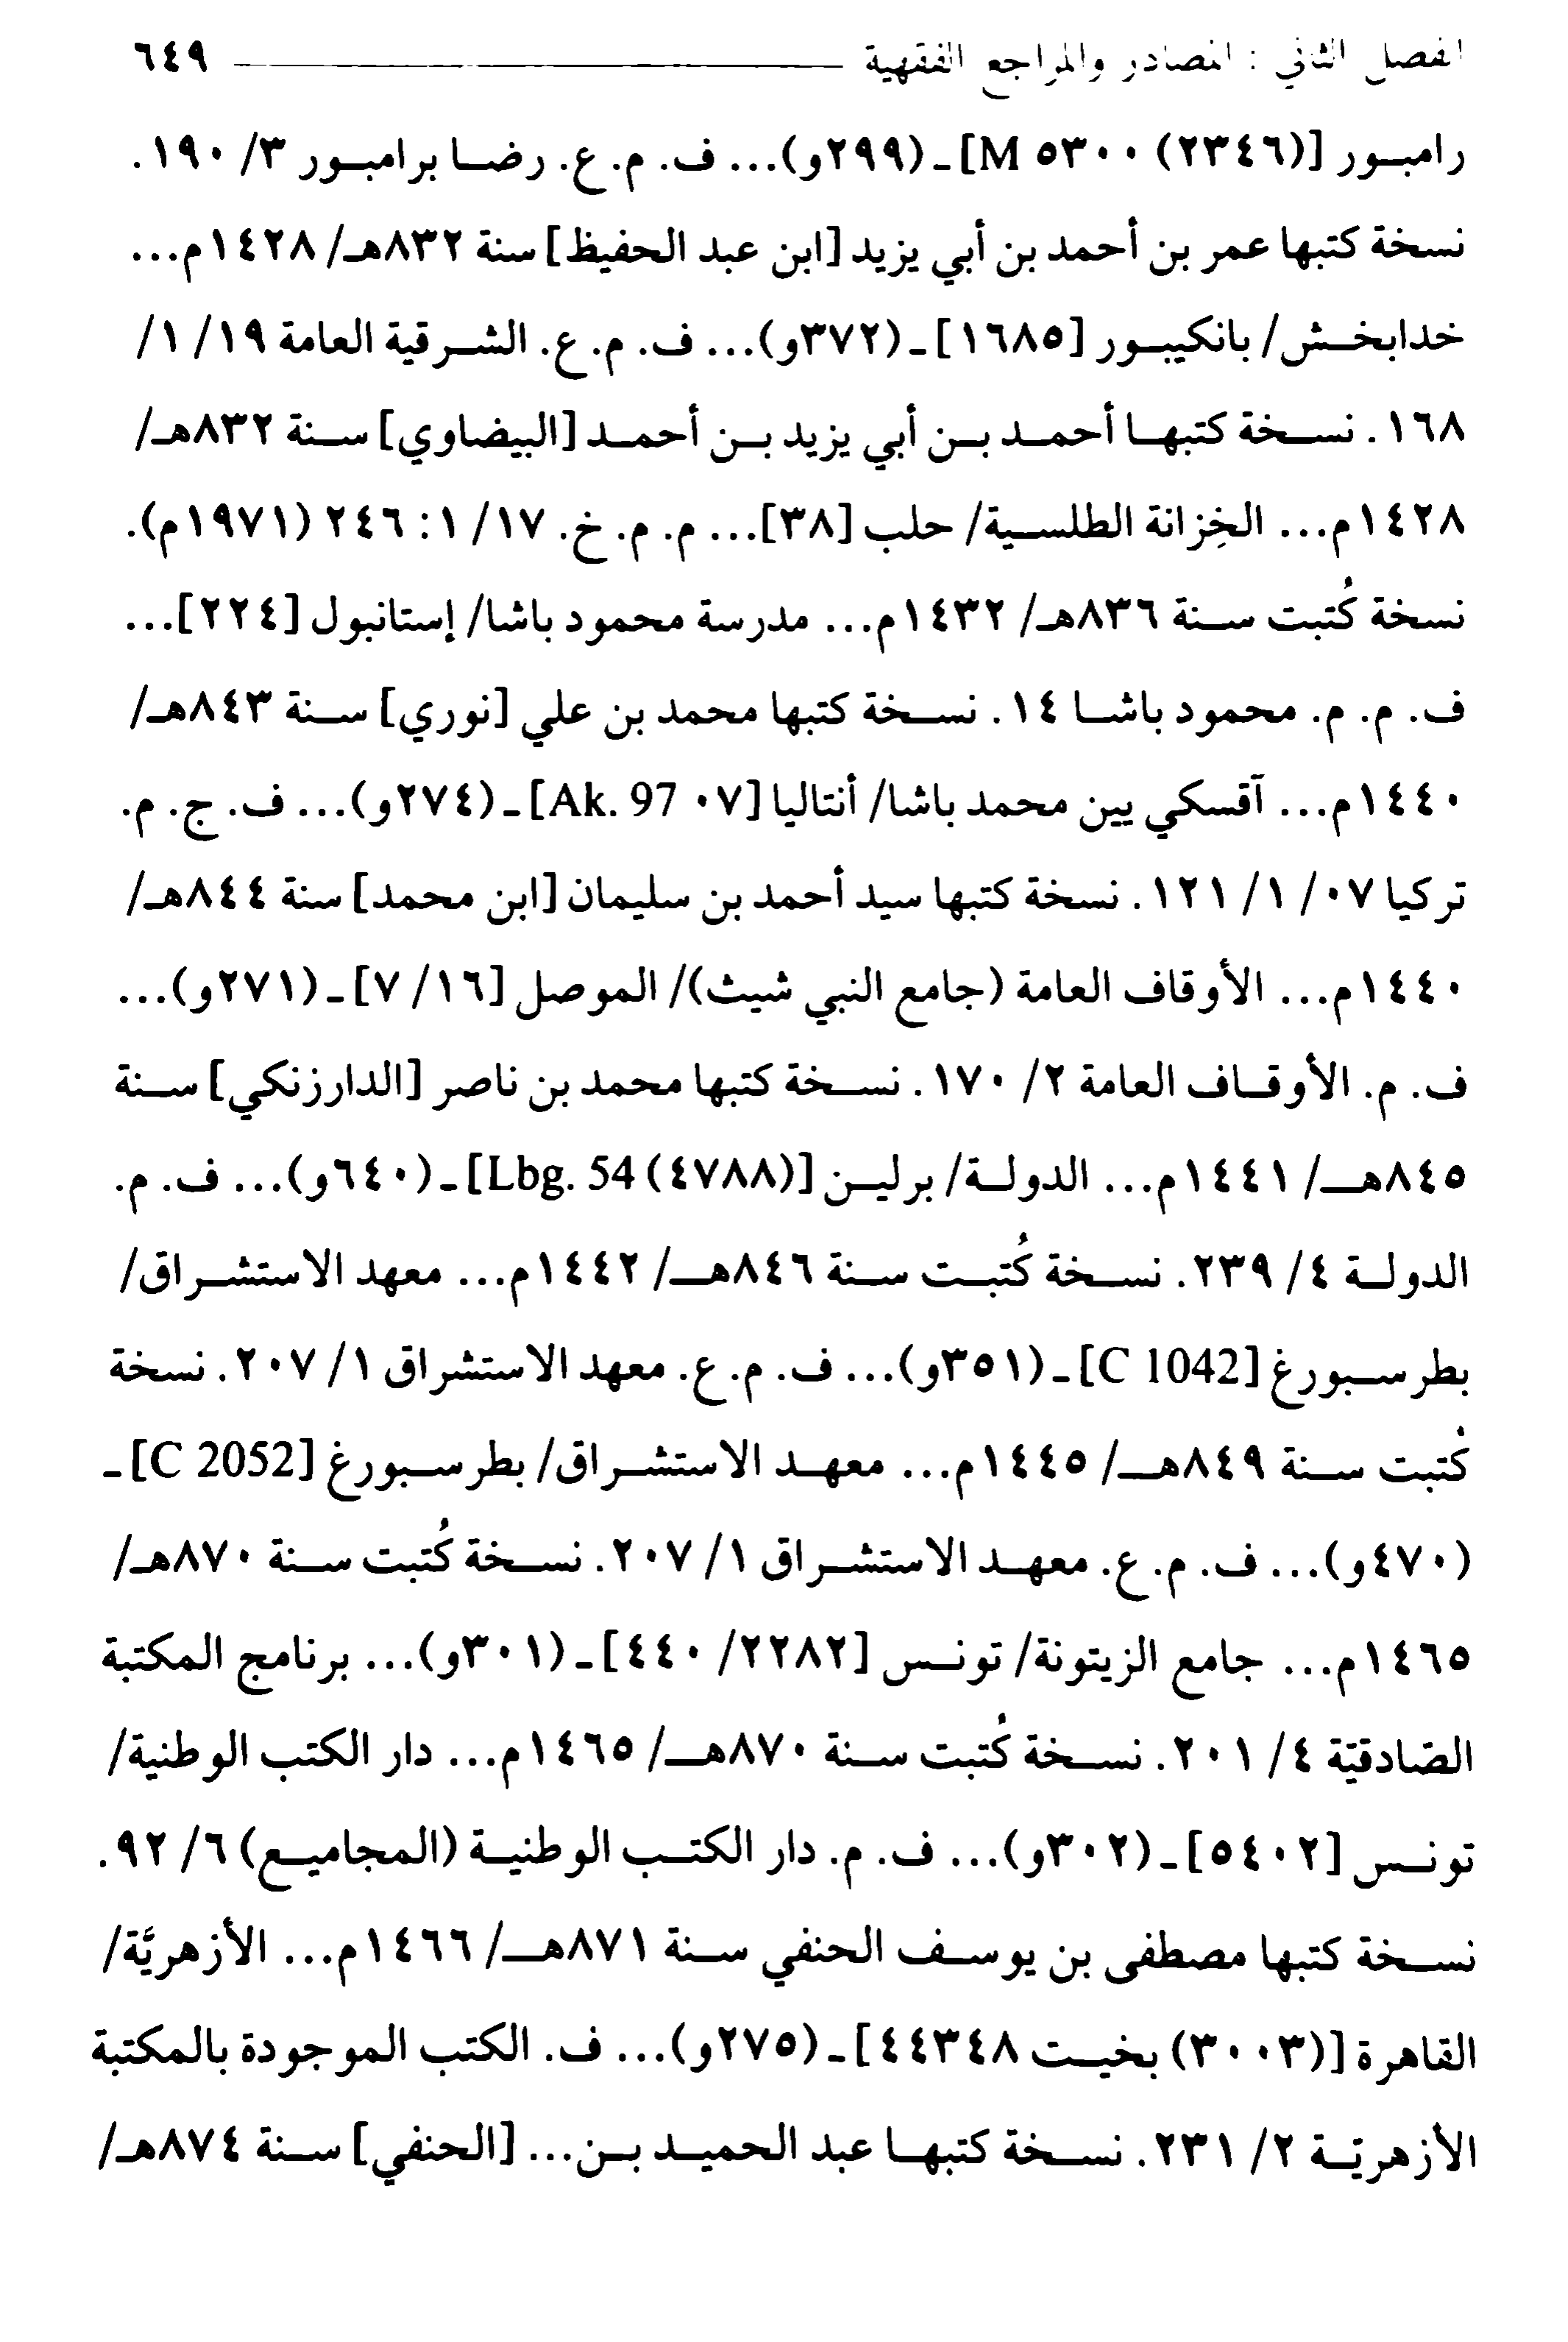 الفصل الثاني : المصادر والمراجع الفقهية ٦٤٩
رامبور [(٢٣٤٦) ٥٣٠٠ M] - (٢٩٩و)... ف. م. ع. رضا برامبور ٣/ ١٩٠.
نسخة كتبها عمر بن أحمد بن أبي يزيد [ابن عبد الحفيظ] سنة ٨٣٢هـ/ ١٤٢٨م...
خدابخش/ بانكيبور [١٦٨٥] - (٣٧٢و)... ف. م. ع. الشرقية العامة ١٩/ ١/
١٦٨. نسخة كتبها أحمد بن أبي يزيد بن أحمد [البيضاوي] سنة ٨٣٢هـ/
١٤٢٨م... الخِزانة الطلسية/ حلب [٣٨]... م. م. خ. ١٧/ ١: ٢٤٦ (١٩٧١م).
نسخة كُتبت سنة ٨٣٦هـ/ ١٤٣٢م... مدرسة محمود باشا/ إستانبول [٢٢٤]...
ف. م. م. محمود باشا ١٤. نسخة كتبها محمد بن علي [نوري] سنة ٨٤٣هـ/
١٤٤٠م... آقسكي يين محمد باشا/ أنتاليا [٠٧ Ak. 97] - (٢٧٤و)... ف. ج. م.
تركيا ٠٧/ ١/ ١٢١. نسخة كتبها سيد أحمد بن سليمان [ابن محمد] سنة ٨٤٤هـ/
١٤٤٠م... الأوقاف العامة (جامع النبي شيث)/ الموصل [١٦/ ٧] - (٢٧١و)...
ف. م. الأوقاف العامة ٢/ ١٧٠. نسخة كتبها محمد بن ناصر [الدارزنكي] سنة
٨٤٥هـ/ ١٤٤١م... الدولة/ برلين [(٤٧٨٨) Lbg. 54] - (٦٤٠و)... ف. م.
الدولة ٤/ ٢٣٩. نسخة كُتبت سنة ٨٤٦هـ/ ١٤٤٢م... معهد الاستشراق/
بطرسبورغ [C 1042] - (٣٥١و)... ف. م. ع. معهد الاستشراق ١/ ٢٠٧. نسخة
كُتبت سنة ٨٤٩هـ/ ١٤٤٥م... معهد الاستشراق/ بطرسبورغ [C 2052] -
(٤٧٠و)... ف. م. ع. معهد الاستشراق ١/ ٢٠٧. نسخة كُتبت سنة ٨٧٠هـ/
١٤٦٥م... جامع الزيتونة/ تونس [٢٢٨٢/ ٤٤٠] - (٣٠١و)... برنامج المكتبة
الصّادقيّة ٤/ ٢٠١. نسخة كُتبت سنة ٨٧٠هـ/ ١٤٦٥م... دار الكتب الوطنية/
تونس [٥٤٠٢] - (٣٠٢و)... ف. م. دار الكتب الوطنية (المجاميع) ٦/ ٩٢.
نسخة كتبها مصطفى بن يوسف الحنفي سنة ٨٧١هـ/ ١٤٦٦م... الأزهريَّة/
القاهرة [(٣٠٠٣) بخيت ٤٤٣٤٨] - (٢٧٥و)... ف. الكتب الموجودة بالمكتبة
الأزهريّة ٢/ ٢٣١. نسخة كتبها عبد الحميد بن... [الحنفي] سنة ٨٧٤هـ/